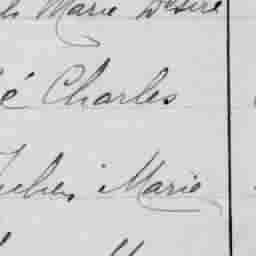 Marie Désiré
é Charles
Julien Marie